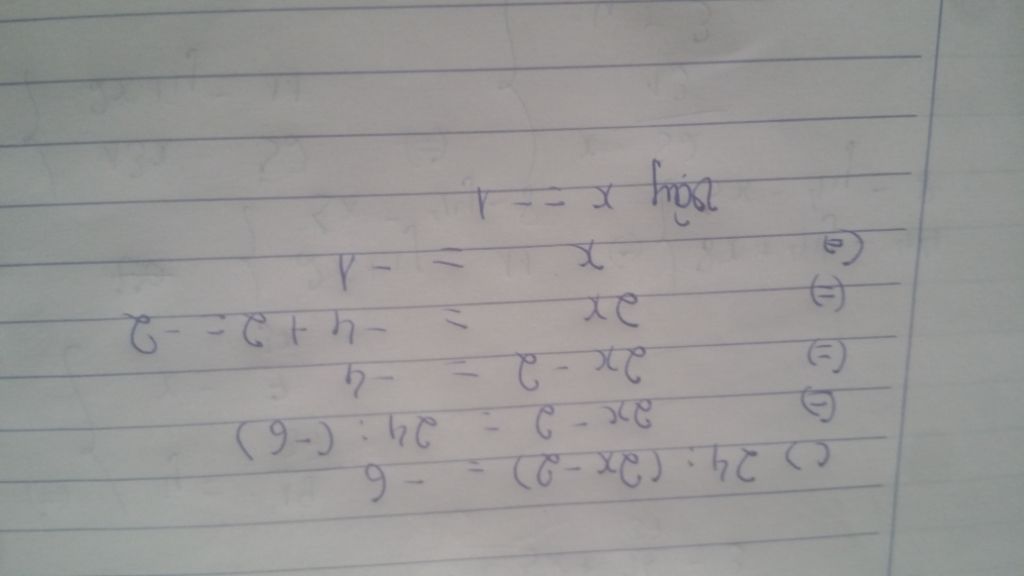 c) 24 : (2x - 2) = - 6
(=) 2x - 2 = 24 : (-6)
(=) 2x - 2 = - 4
(=) 2x = - 4 + 2 = - 2
(=) x = - 1
Vậy x = - 1